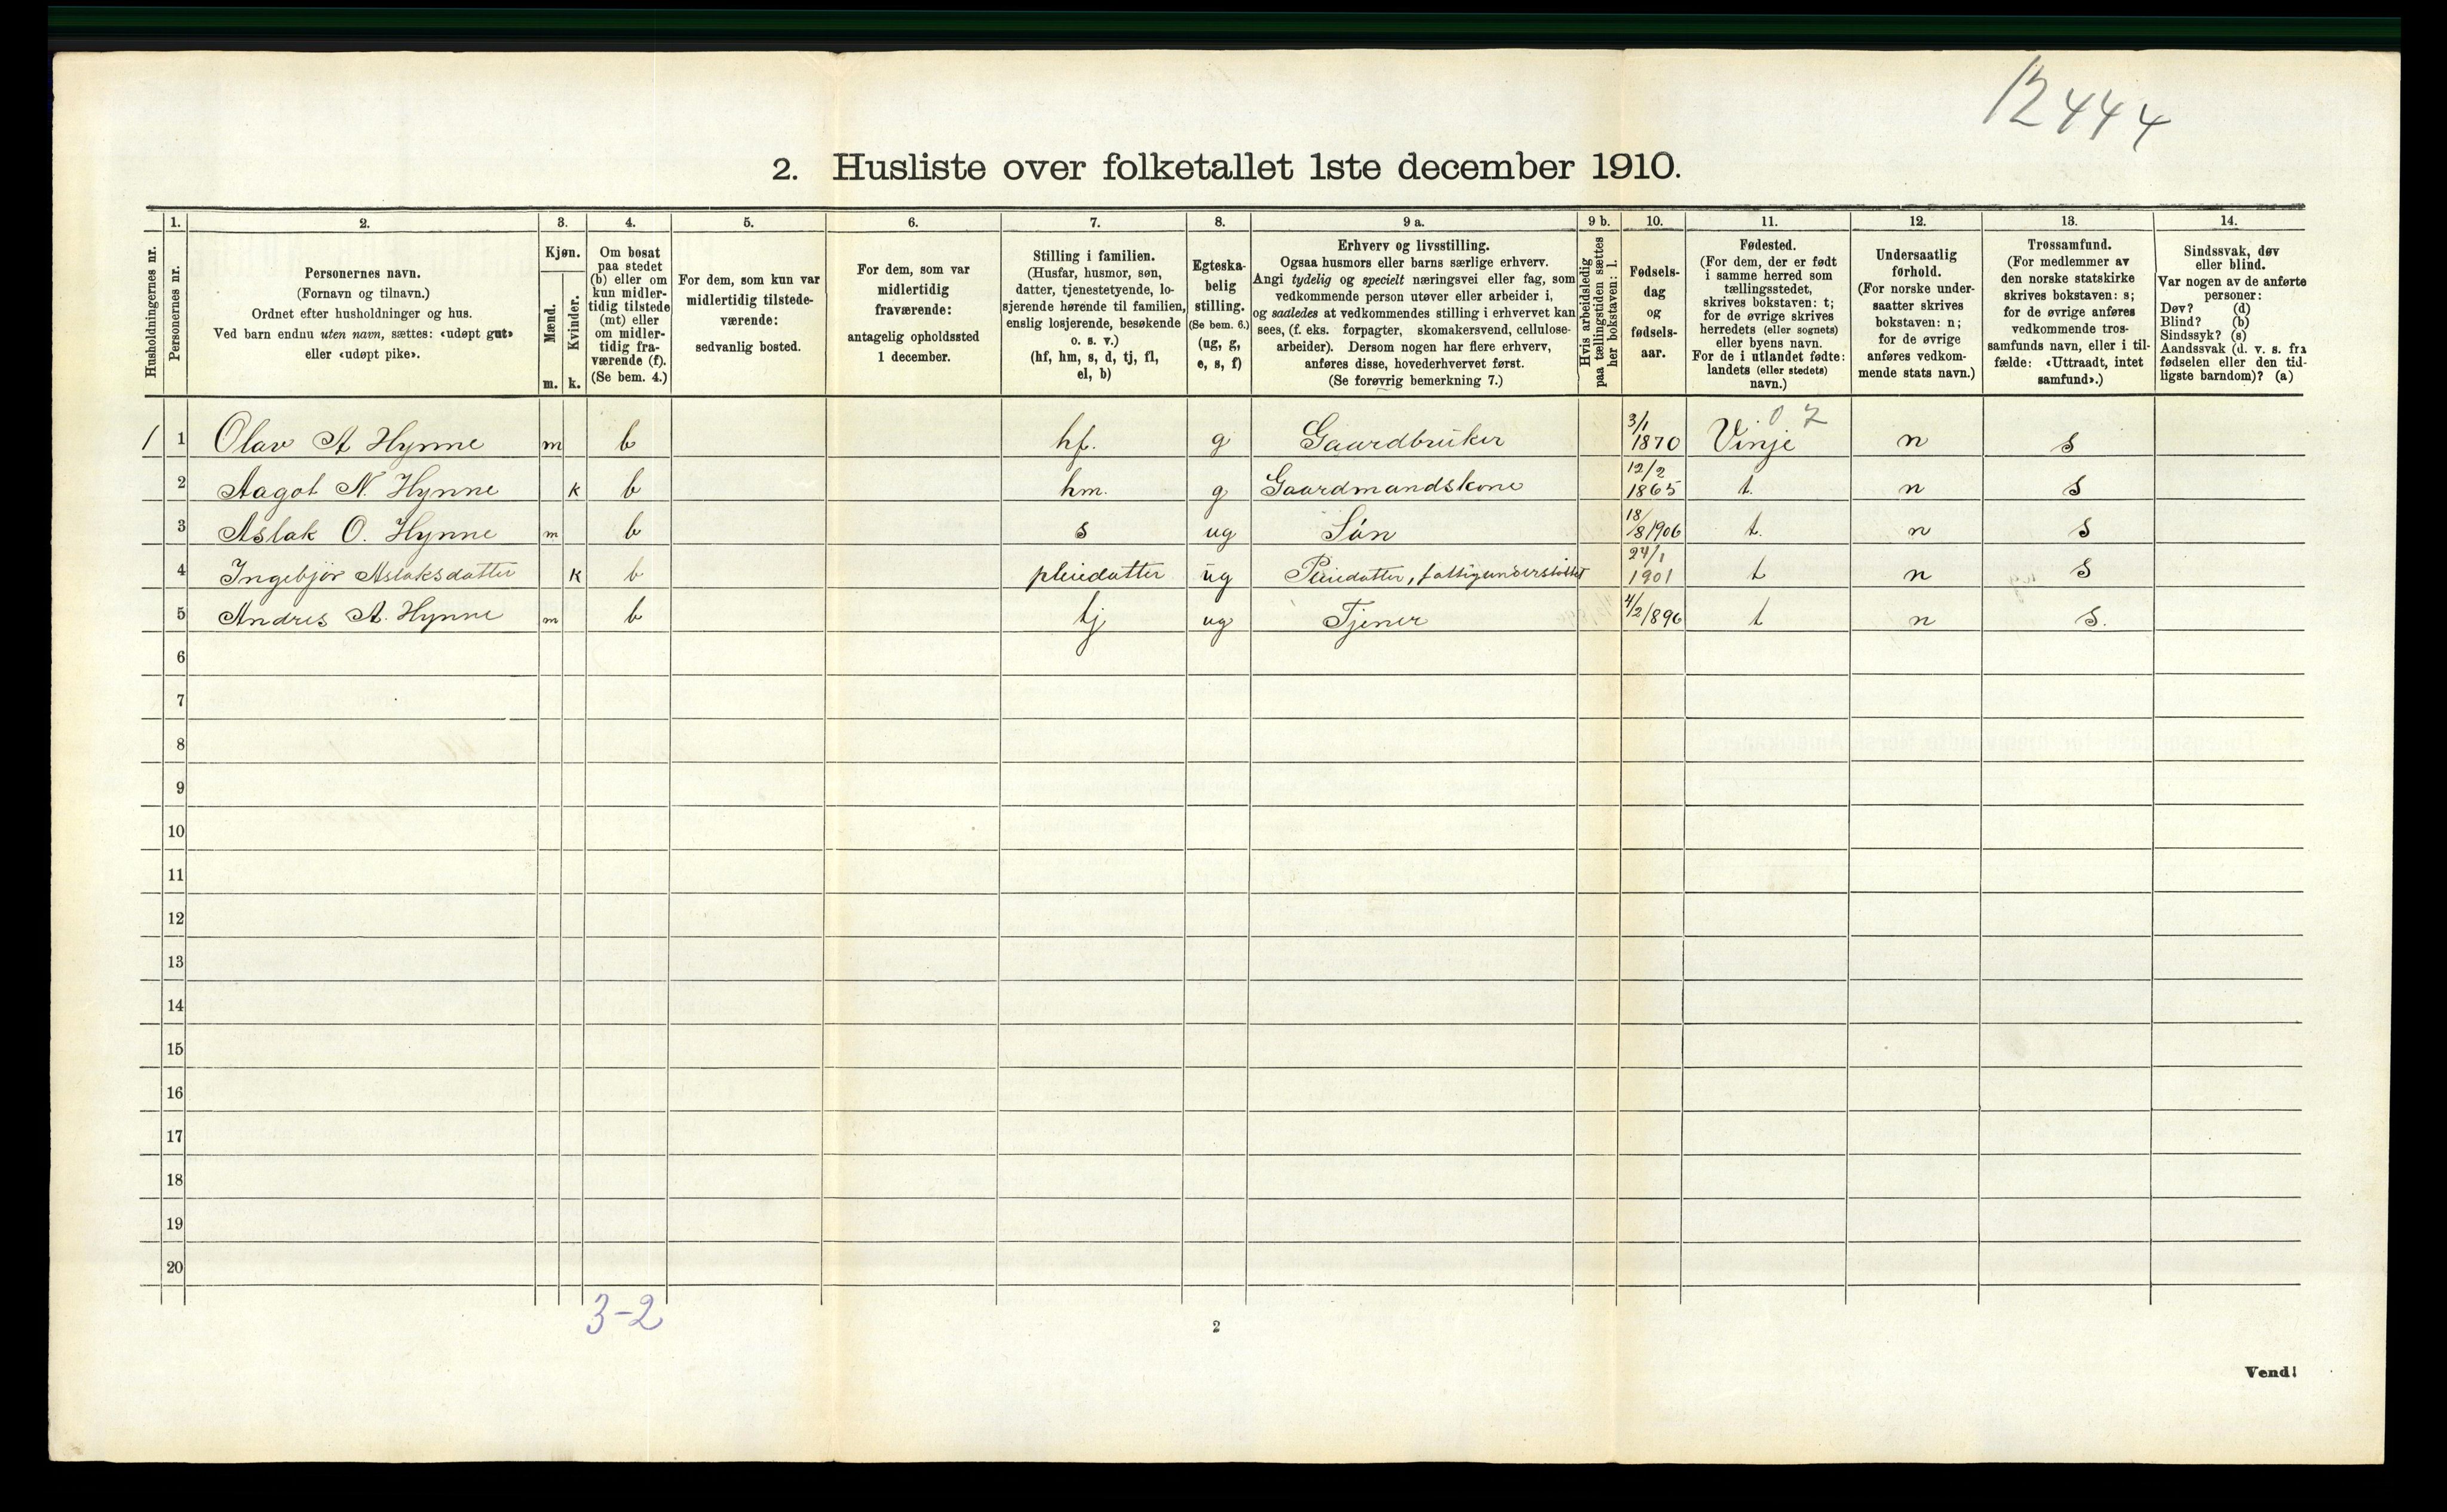 12444
2. Husliste over folketallet 1ste december 1910.
1. 2. 3. 4. 5. 6. 7. 8. 9 a. 9 b. 10. 11. 12. 13. 14.
Husholdningernes nr.
Personernes nr.
Personernes navn.
(Fornavn og tilnavn.)
Ordnet efter husholdninger og hus.
Ved barn endnu uten navn, sættes: «udøpt gut»
eller «udøpt pike».
Kjøn.
Mænd.
m.
Kvinder.
k.
Om bosat
paa stedet
(b) eller om
kun midler-
tidig tilstede
(mt) eller
om midler-
tidig fra-
værende (f).
(Se bem. 4.)
For dem, som kun var
midlertidig tilstede-
værende:
sedvanlig bosted.
For dem, som var
midlertidig
fraværende:
antagelig opholdssted
1 december.
Stilling i familien.
(Husfar, husmor, søn,
datter, tjenestetyende, lo-
sjerende hørende til familien,
enslig losjerende, besøkende
o. s. v.)
(hf, hm, s, d, tj, fl,
el, b)
Egteska-
belig
stilling.
(Se bem. 6.)
(ug, g,
e, s, f)
Erhverv og livsstilling.
Ogsaa husmors eller barns særlige erhverv.
Angi tydelig og specielt næringsvei eller fag, som
vedkommende person utøver eller arbeider i,
og saaledes at vedkommendes stilling i erhvervet kan
sees, (f. eks. forpagter, skomakersvend, cellulose-
arbeider). Dersom nogen har flere erhverv,
anføres disse, hovederhvervet først.
(Se forøvrig bemerkning 7.)
Hvis arbeidsledig
paa tællingstiden sættes
her bokstaven: l.
Fødsels-
dag
og
fødsels-
aar.
Fødested.
(For dem, der er født
i samme herred som
tællingsstedet,
skrives bokstaven: t;
for de øvrige skrives
herredets (eller sognets)
eller byens navn.
For de i utlandet fødte:
landets (eller stedets)
navn.)
Undersaatlig
forhold.
(For norske under-
saatter skrives
bokstaven: n;
for de øvrige
anføres vedkom-
mende stats navn.)
Trossamfund.
(For medlemmer av
den norske statskirke
skrives bokstaven: s;
for de øvrige anføres
vedkommende tros-
samfunds navn, eller i til-
fælde: «Uttraadt, intet
samfund».)
Sindssvak, døv
eller blind.
Var nogen av de anførte
personer:
Døv? (d)
Blind? (b)
Sindssyk? (s)
Aandssvak (d. v. s. fra
fødselen eller den tid-
ligste barndom)? (a)
1 1 Olav A Hynne m b hf. g Gaardbruker 3/1 1870 Vinje 07 n s
2 Aagot N. Hynne k b hm. g Gaardmandskone 12/2 1865 t. n s
3 Aslak O. Hynne m b s ug Søn 18/8 1906 t. n s
4 Ingebjør Aslaksdatter k b pleiedatter ug Pleiedatter, fattigunderstøttet 24/1 1901 t n s
5 Andres A. Hynne m b tj ug Tjener 4/2 1896 t n s.
6
7
8
9
10
11
12
13
14
15
16
17
18
19
20
3-2
2
Vend!